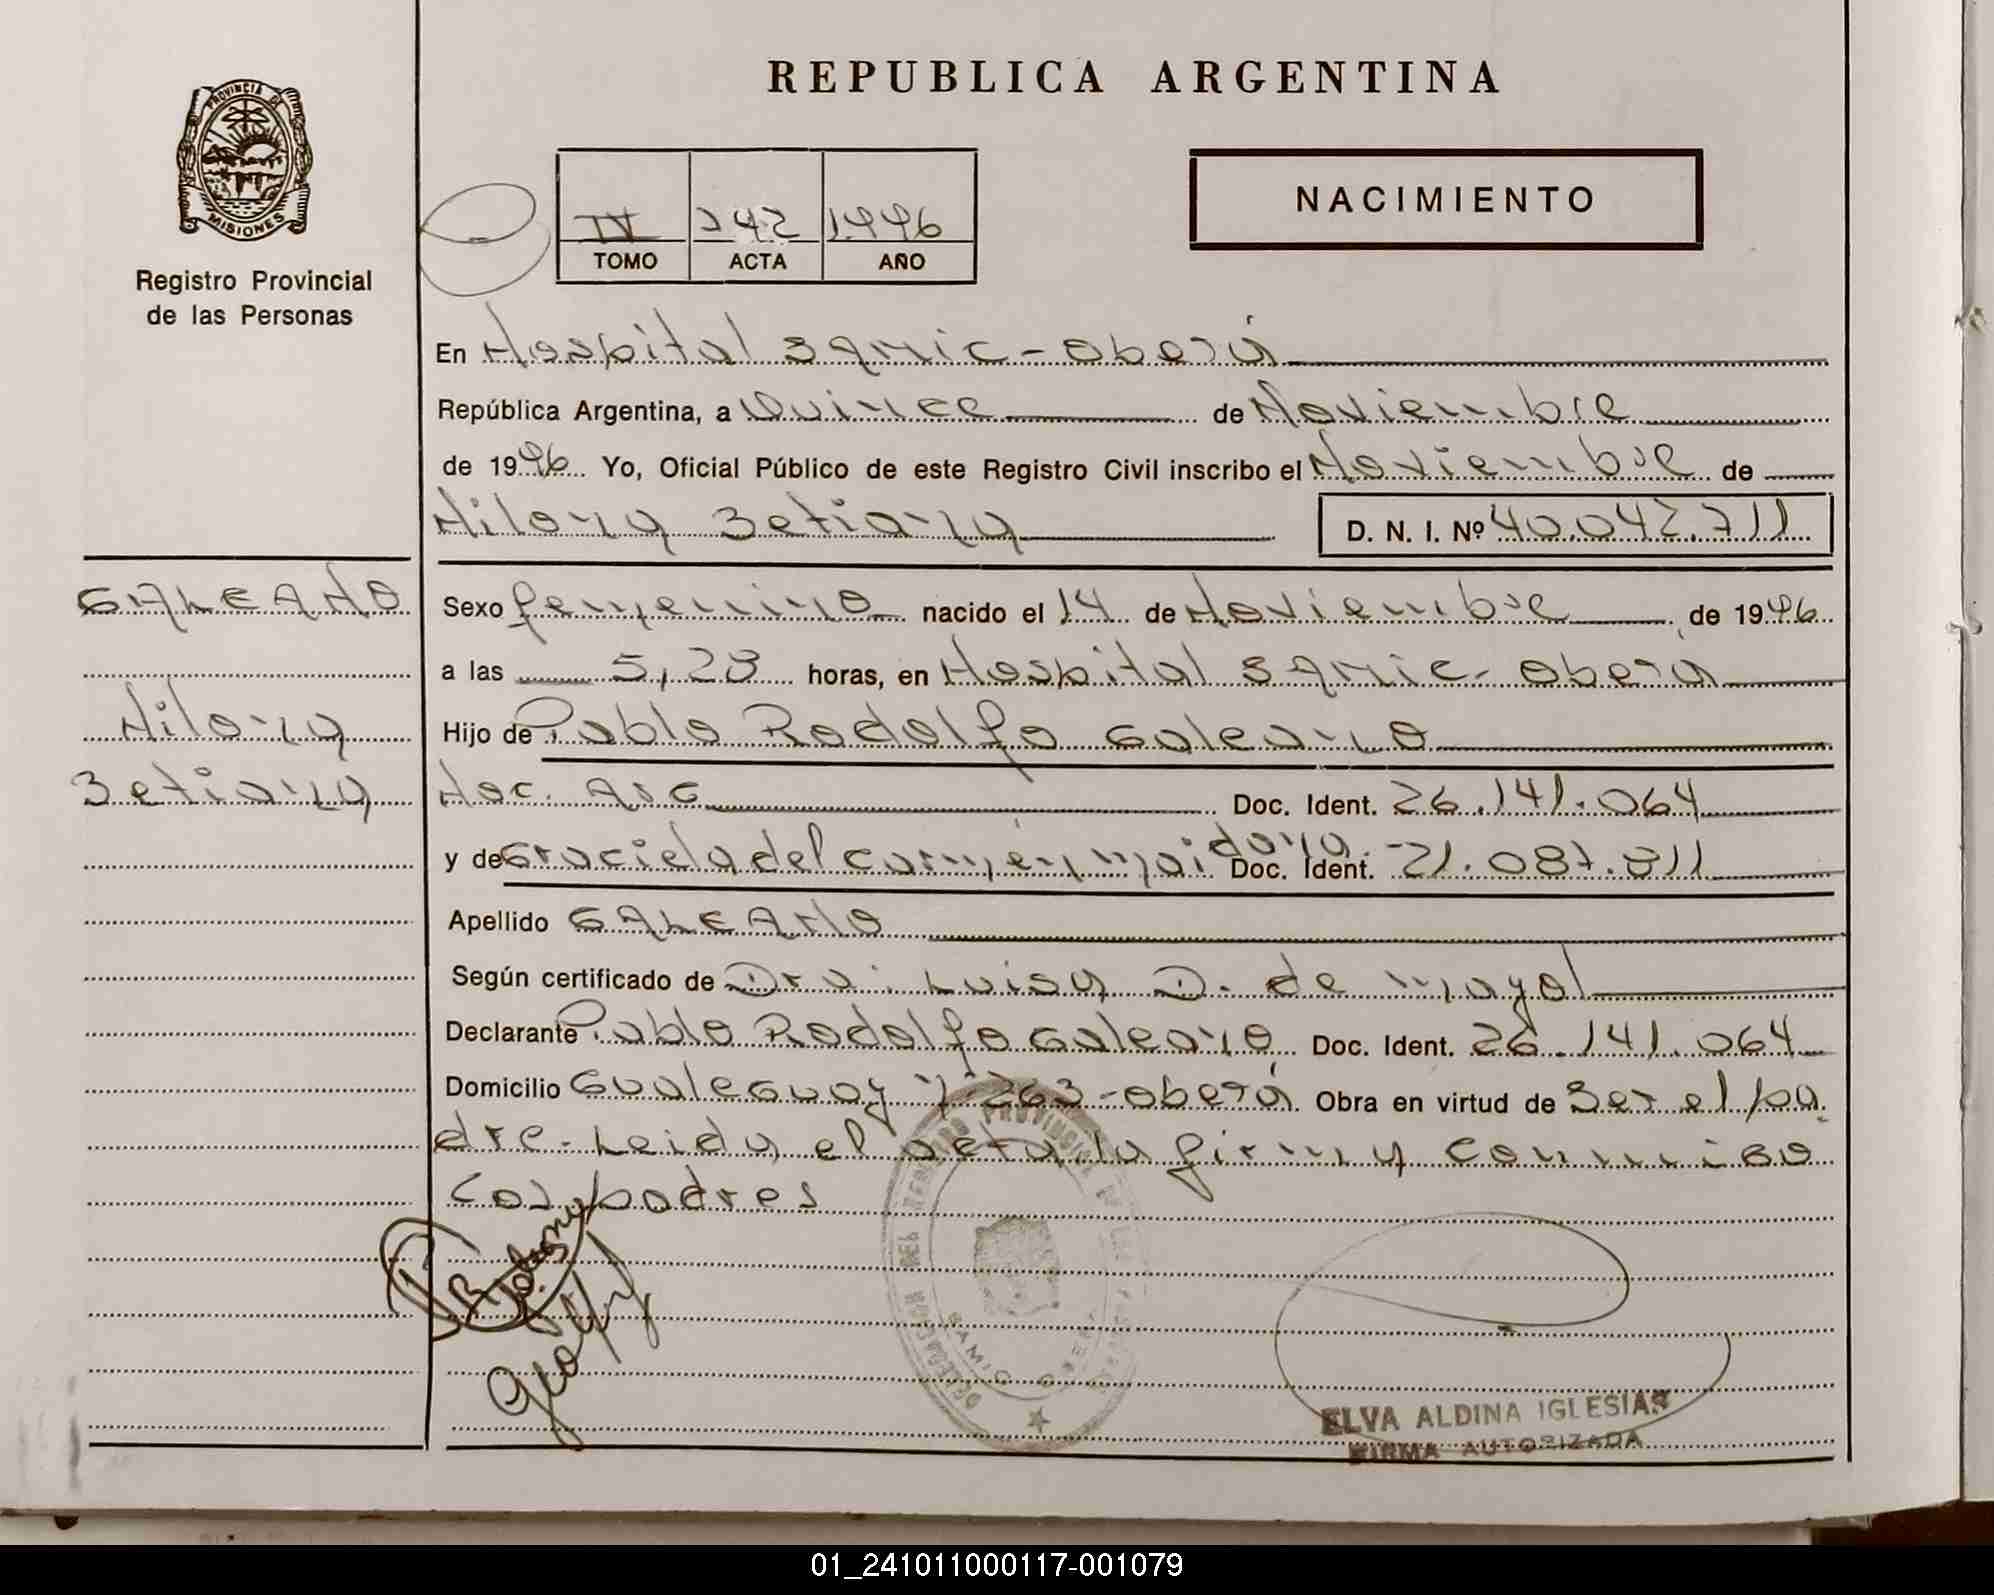 REPUBLICA ARGENTINA
PROVINCIA DE
MISIONES
Registro Provincial
de las Personas
IV 242 1996
TOMO ACTA AÑO
NACIMIENTO
En Hospital Samic - Oberá
República Argentina, a Quince de Noviembre
de 1996 Yo, Oficial Público de este Registro Civil inscribo el Noviembre de
D. N. I. Nº 40.042.711
GALEANO
Sexo femenino nacido el 14 de Noviembre de 1996
a las 5,23 horas, en Hospital Samic - Oberá
Hijo de Pablo Rodolfo Galeano
Nac. Arg Doc. Ident. 26.141.064
y de Graciela del Carmen Maidana Doc. Ident. 21.087.811
Apellido GALEANO
Según certificado de Dra. Luisa D. de Mayol
Declarante Pablo Rodolfo Galeano Doc. Ident. 26.141.064
Domicilio Gualeguay 263 - Oberá Obra en virtud de Ser el pa
dre. Leida el acta la firma conmigo
los padres
DELEGACION DEL REGISTRO PROVINCIAL DE LAS PERSONAS
SAMIC OBERA
ELVA ALDINA IGLESIAS
FIRMA AUTORIZADA
01_241011000117-001079